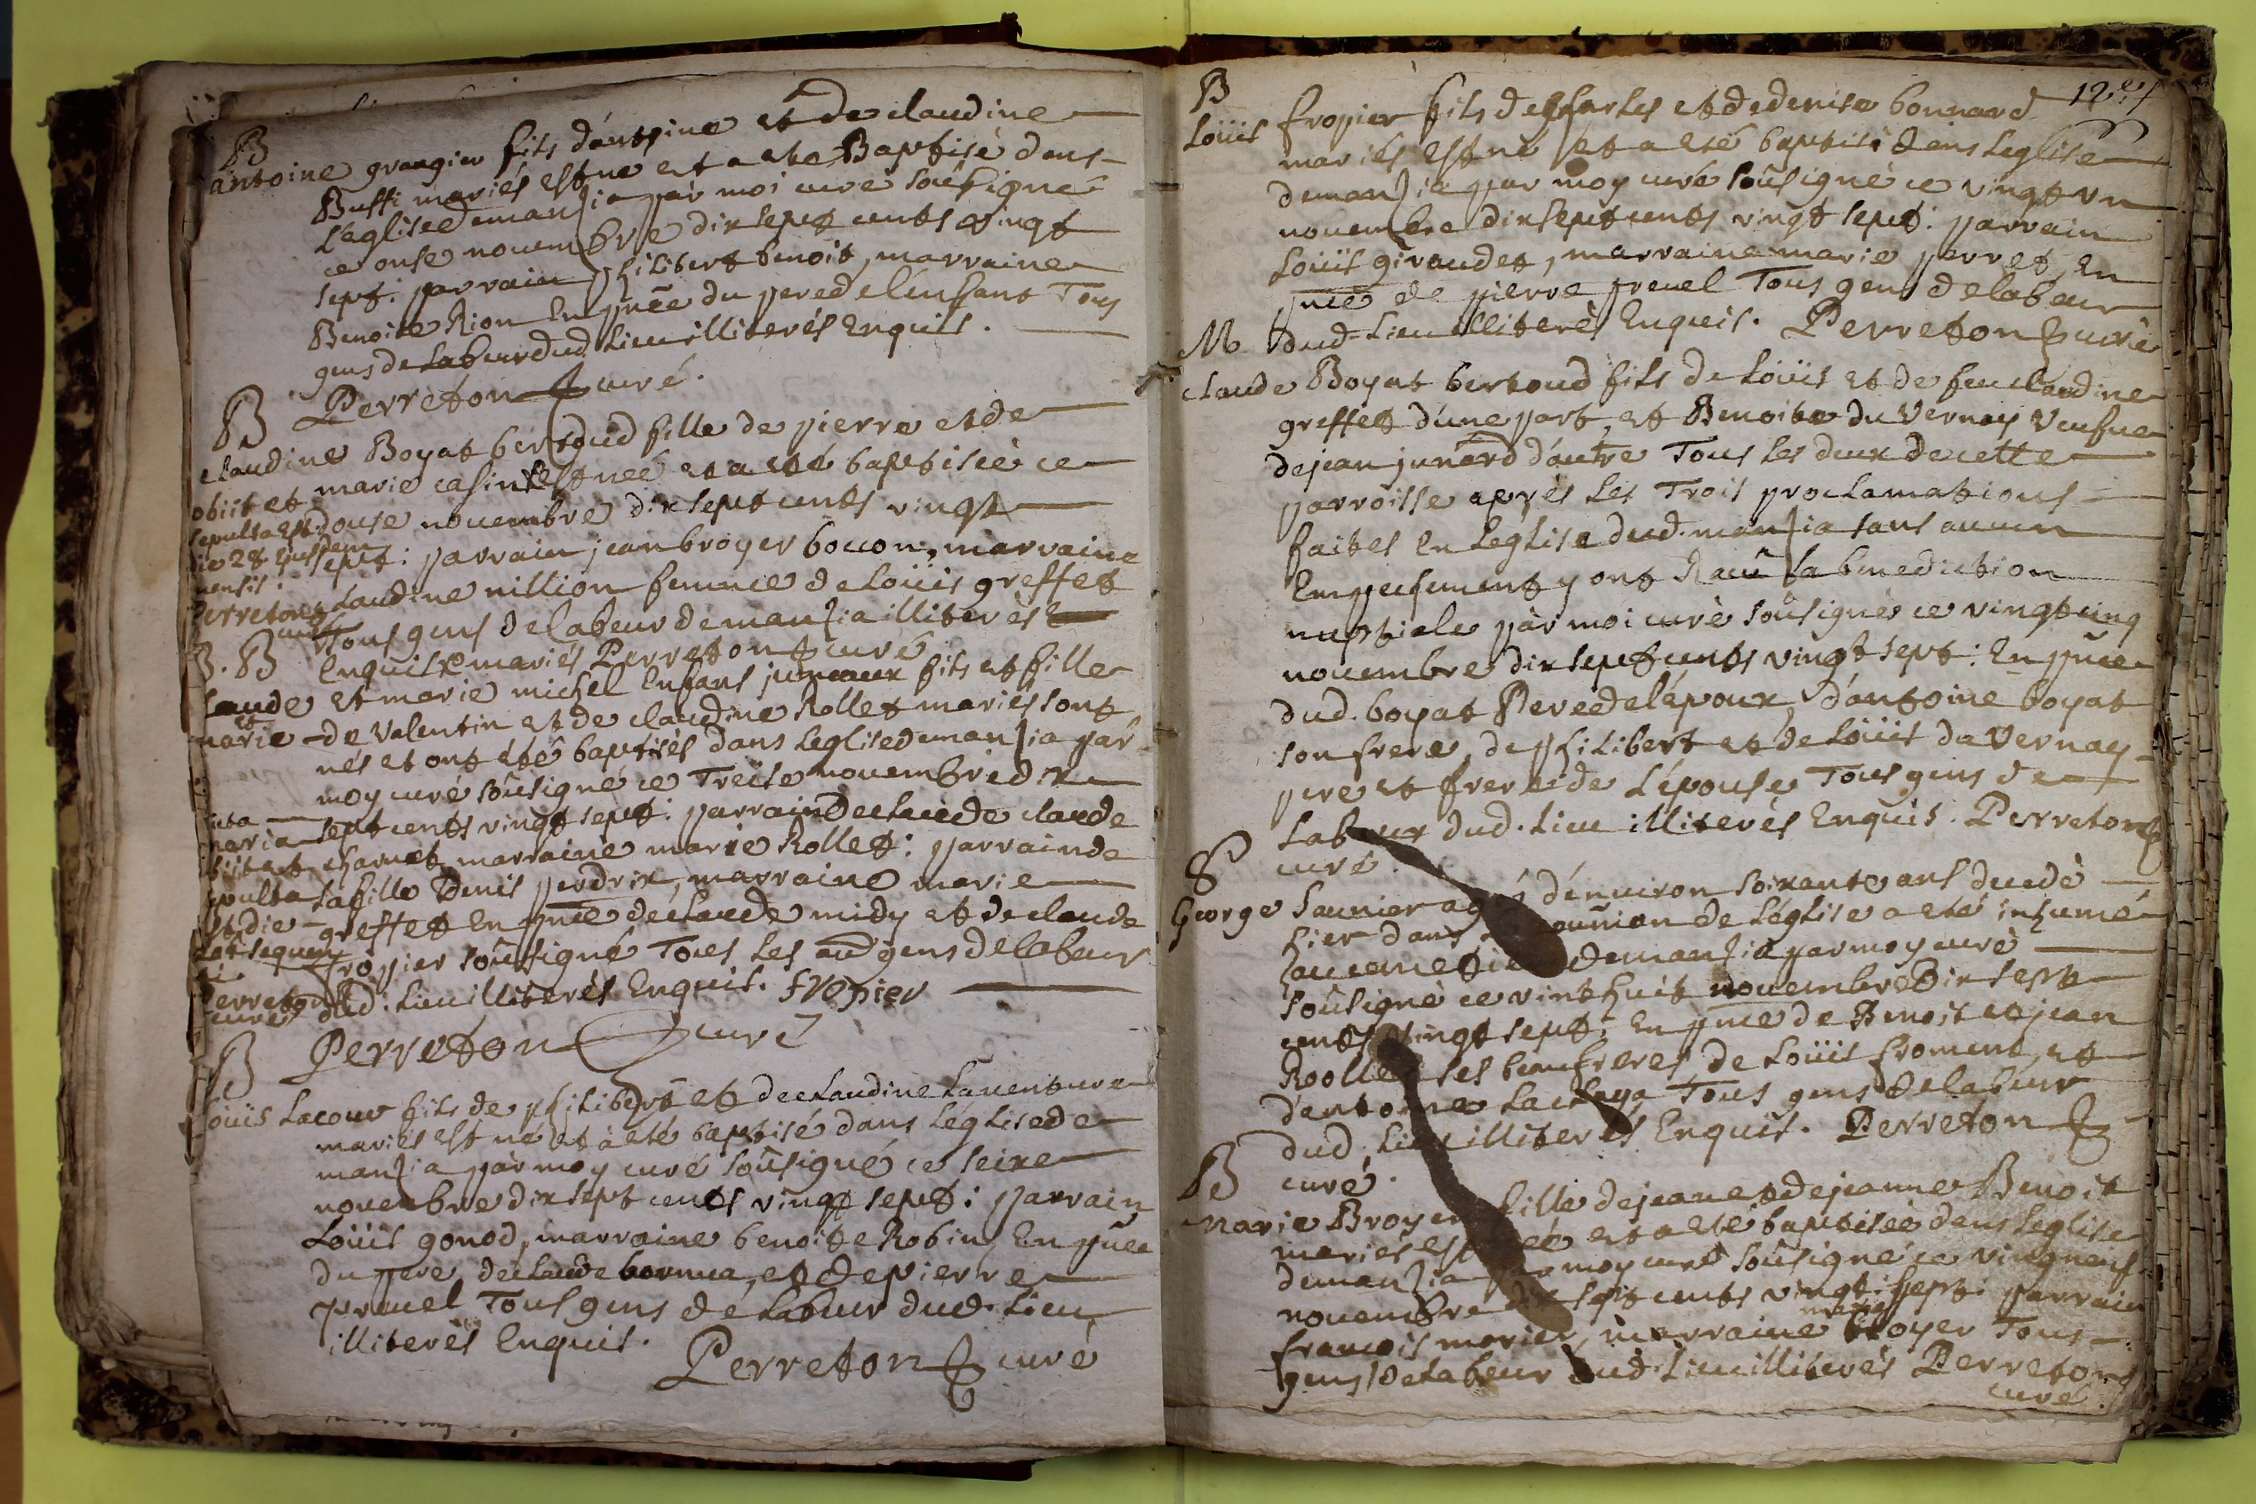 B
antoine grangier fils d'antoine et de claudine
Buffi mariés est né et a esté Baptisé dans
l'eglise de manzia par moi curé soûsigné
ce onse novembre dix sept cents vingt
sept: parrain philibert benoit, marraine
Benoite Rion En pnce du pere de l'enfant Tous
gens de labeur dud. Lieu illiterés Enquis.
Perreton curé.
B
claudine Boyat bertoud fille de pierre et de
marie casin est née et a été baptisée ce
douse novembre dix sept cents vingt
sept: parrain jean broyer bocon, marraine
claudine nillion femme de Loüis greffet
Tous gens de labeur de manzia illiterés
Enquis mariés Perreton curé
obiit et
sepulta est
die 28 ejusdem
mensis:
Perreton
curé
B. B
claude et marie michel Enfans jumeaux fils et fille
et
marie de Valentin et de claudine Rollet mariés sont
nés et ont été baptisés dans l'eglise de manzia par
moy curé soûsigné ce Treise novembre dix
sept cents vingt sept: parrain de claude claude
charnet, marraine marie Rollet: parrain de
la fille Denis perdrix, marraine marie
greffet En pnce de claude midy et de claude
fropier soûsigné Tous les aud gens de labeur
dud. Lieu illiterés Enquis. fropier
maria
obiit et
sepulta
est die
sequenti
Perreton
curé
Perreton curé
B
Loüis Lacour fils de philibert et de claudine Laventure
mariés est né et à eté baptisé dans l'eglise de
manzia par moy curé soûsigné ce seixe
novembre dix sept cents vingt sept: parrain
Loüis gonod, marraine benoite Robin, En pnce
du pere, de claude bornua, et de pierre
pravel Tous gens de Labeur dud. Lieu
illiterés Enquis.
Perreton curé
B
Loüis fropier fils de charles et de denise bonnard
mariés est né et a eté baptisé dans leglise
de manzia par moy curé soûsigné ce vingt un
novembre dix sept cents vingt sept: parrain
Loüis giraudet, marraine marie perret, En
pnce de pierre prevel Tous gens de labeur
dud. Lieu illiterés Enquis. Perreton curé
M
claude Boyat bertoud fils de Loüis et de feu claudine
greffet d'une part, et Benoite du Vernay Veufue
de jean junard d'autre Tous les deux de cette
parroisse après les Trois proclamations
faites En leglise dud. manzia sans aucun
Empechement y ont Receû la benediction
nuptiale par moi curé soûsigné ce vingt cinq
novembre dix sept cents vingt sept: En pnce
dud. boyat Pere de lépoux, d'antoine boyat
son frere, de philibert et de Loüis du Vernay
pere et frere de l'épouse Tous gens de
Labeur dud. Lieu illiterés Enquis. Perreton
curé
S
George Saunier agé d'environ soixante ans decedé
hier dans la communion de l'église a eté inhumé
au cimetiere de manzia par moy curé
soûsigné ce vint huit novembre Dix sept
cents vingt sept: En pnce de Benoit et jean
Roollet ses beaufreres, de Loüis froment, et
d'antoine Tous gens de labeur
dud. Lieu illiterés Enquis. Perreton
curé.
B
Marie Broyer fille de jean et de jeanne Benoit
mariés est née et a eté baptisée dans leglise
de manzia par moy curé soûsigné ce vingneuf
novembre dix sept cents vingt sept: parrain
francois morier, marraine marie broyer Tous
gens de labeur dud. Lieu illiterés Perreton
curé.